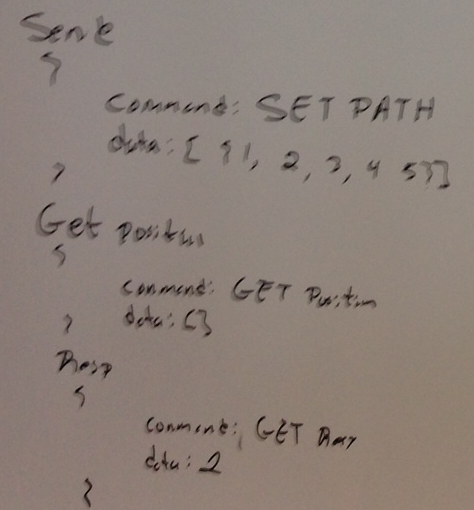 Send
{
command: SET PATH
data: [ {1, 2, 3, 4 5}]
}
Get position
{
command: GET Position
data: {}
}
Resp
{
command: GET
data: 2
}